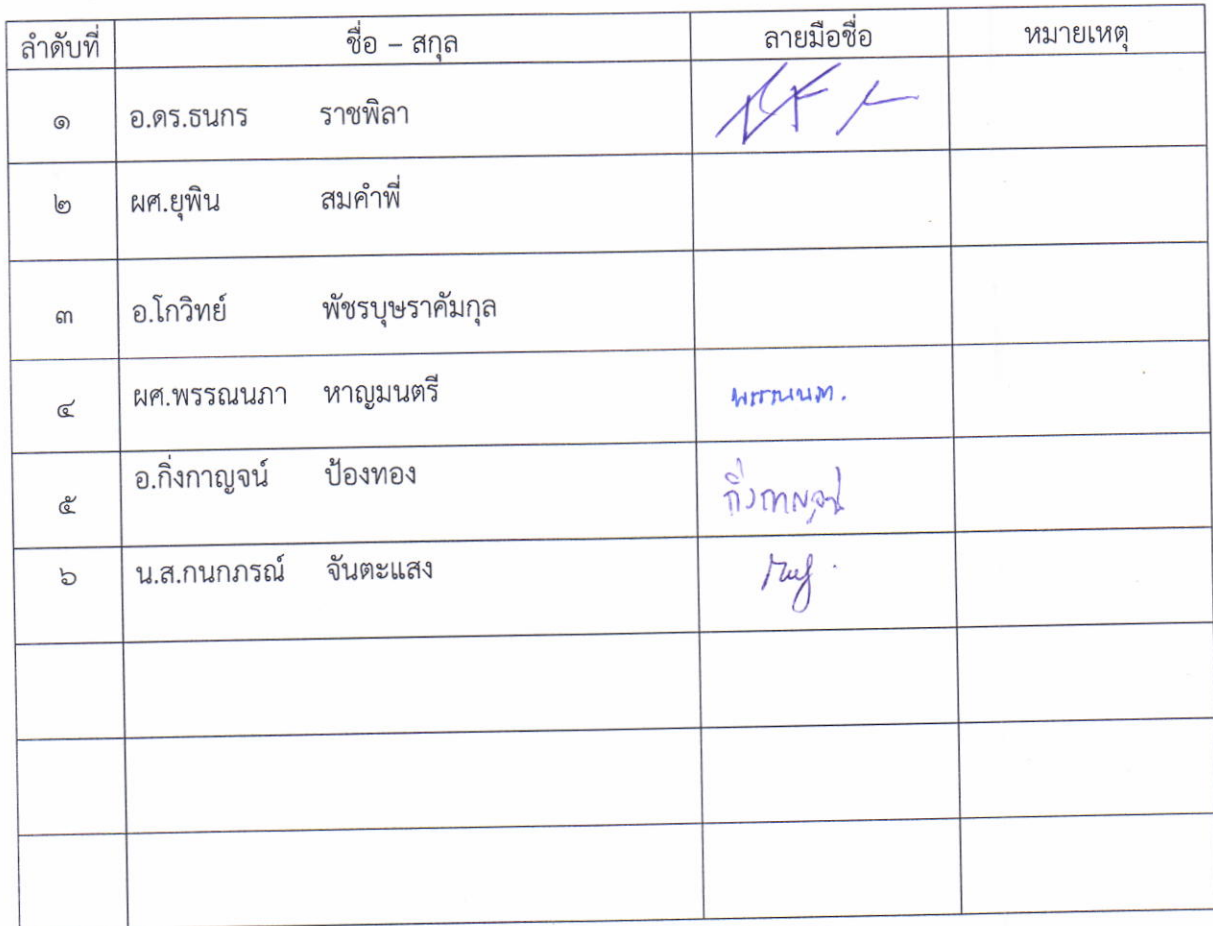 ลำดับที่ ชื่อ – สกุล ลายมือชื่อ หมายเหตุ
๑ อ.ดร.ธนกร ราชพิลา
๒ ผศ.ยุพิน สมคำพี่
๓ อ.โกวิทย์ พัชรบุษราคัมกุล
๔ ผศ.พรรณนภา หาญมนตรี พรรณนภา.
๕ อ.กิ่งกาญจน์ ป้องทอง กิ่งกาญจน์
๖ น.ส.กนกภรณ์ จันตะแสง